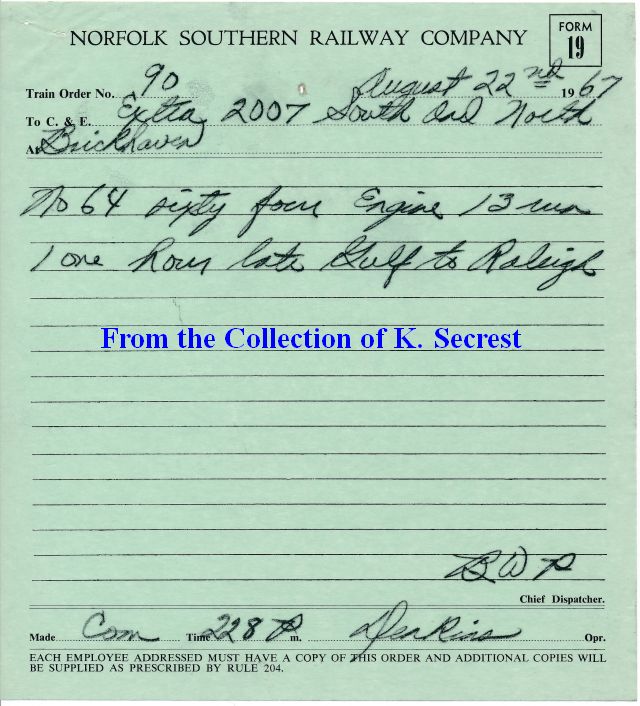 NORFOLK SOUTHERN RAILWAY COMPANY
FORM
19
Train Order No. 90 August 22nd 1967
To C. & E. Extra 2007 South and North
At Brickhaven
No 64 sixty four Engine 13 run
1 one hour late Gulf to Raleigh
From the Collection of K. Secrest
B W P
Chief Dispatcher.
Made Com Time 228 P. m. Opr.
EACH EMPLOYEE ADDRESSED MUST HAVE A COPY OF THIS ORDER AND ADDITIONAL COPIES WILL
BE SUPPLIED AS PRESCRIBED BY RULE 204.